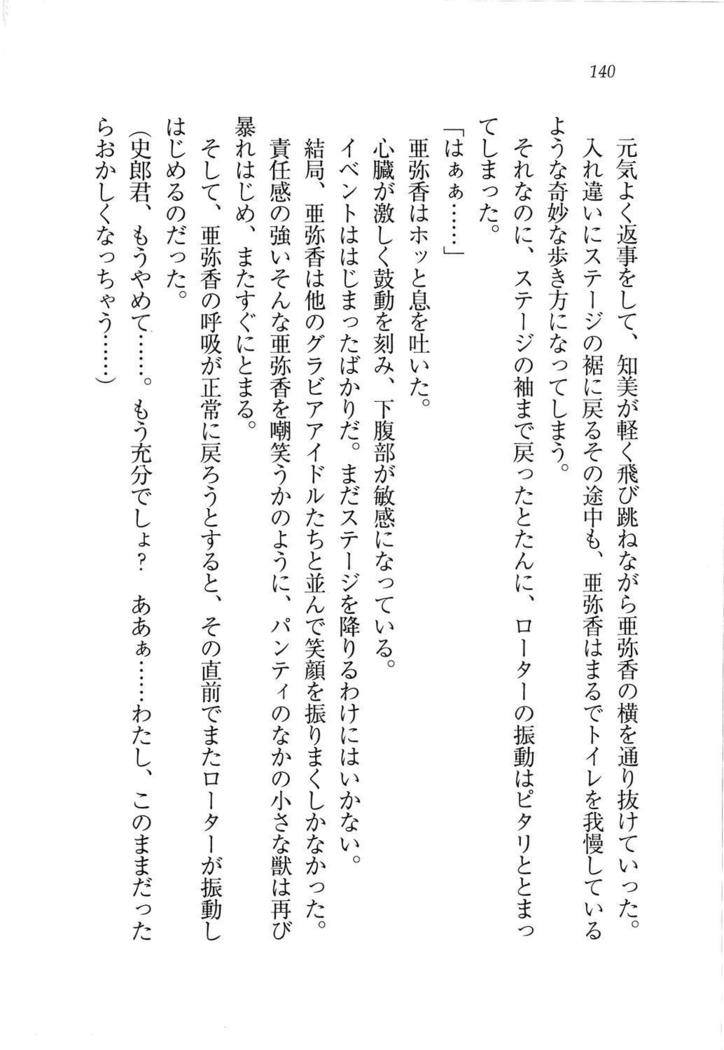 140
元気よく返事をして、知美が軽く飛び跳ねながら亜弥香の横を通り抜けていった。
入れ違いにステージの裾に戻るその途中も、亜弥香はまるでトイレを我慢している
ような奇妙な歩き方になってしまう。
それなのに、ステージの袖まで戻ったとたんに、ローターの振動はピタリととまっ
てしまった。
「はぁぁ……」
亜弥香はホッと息を吐いた。
心臓が激しく鼓動を刻み、下腹部が敏感になっている。
イベントははじまったばかりだ。まだステージを降りるわけにはいかない。
結局、亜弥香は他のグラビアアイドルたちと並んで笑顔を振りまくしかなかった。
責任感の強いそんな亜弥香を嘲笑うかのように、パンティのなかの小さな獣は再び
暴れはじめ、またすぐにとまる。
そして、亜弥香の呼吸が正常に戻ろうとすると、その直前でまたローターが振動し
はじめるのだった。
(史郎君、もうやめて……。もう充分でしょ？　ああぁ……わたし、このままだった
らおかしくなっちゃう……)